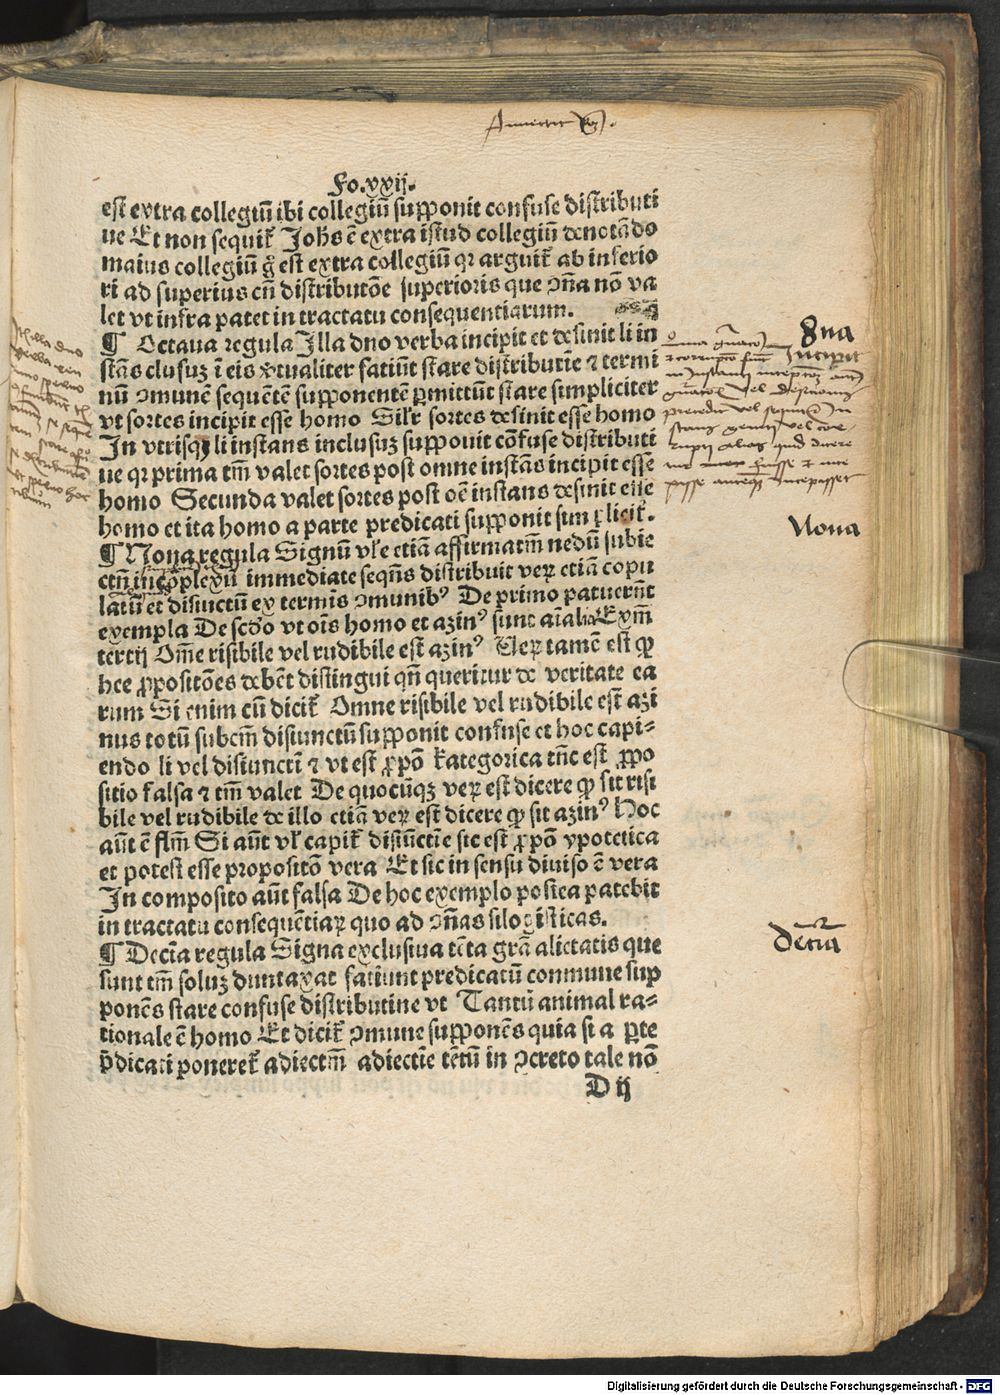 Fo.xxij.
est extra collegiū ibi collegiū supponit confuse distributi
ue Et non sequit᷑ Joh̄s ē extra istud collegiū denotādo
maius collegiū g̊ est extra collegiū qr arguit᷑ ab inferio
ri ad superius cū distributōe superioris que ↄ̄ña nō va
let vt infra patet in tractatu consequentiarum.
¶ Octaua regula Jlla duo verba incipit et desinit li in
stās clusuꝫ ī eis ꝟtualiter faciūt stare distributīe ⁊ termi
nū ↄmunē sequētē supponentē ꝑmittūt stare simpliciter
vt sortes incipit esse homo Silr̄ sortes desinit esse homo
Jn vtrisqꝫ li instans inclusuꝫ supponit cōfuse distributi
ue qr prima tm̄ valet sortes post omne instās incipit esse
homo Secunda valet sortes post oē instans desinit esse
homo et ita homo a parte predicati supponit simplicit᷑.
¶ Nona regula Signū vl̄e etiā affirmatm̄ nedū subie
ctū incōplexū immediate seqn̄s distribuit veꝝ etiā copu
latū et disiūctū ex termīs ↄmunibꝰ De primo patuerūt
exempla De scd̄o vt oīs homo et azinꝰ sunt aīalia Exm̄
tertij Om̄e risibile vel rudibile est azinꝰ Ueꝝ tamē est ꝙ
hee ꝓpositōes debēt distingui qn̄ queritur de veritate ea
rum Si enim cū dicit᷑ Omne risibile vel rudibile est azi
nus totū subcm̄ disiunctū supponit confuse et hoc capi-
endo li vel disiunctī ⁊ vt est ꝓpō kategorica tn̄c est ꝓpo
sitio falsa ⁊ tm̄ valet De quocūqꝫ veꝝ est dicere ꝙ sit risi
bile vel rudibile de illo etiā veꝝ est dicere ꝙ sit azinꝰ Hoc
aūt ē flm̄ Si aūt vl̄ capit᷑ disiūctīe sic est ꝓpō ypotetica
et potest esse propositō vera Et sic in sensu diuiso ē vera
Jn composito aūt falsa De hoc exemplo postea patebit
in tractatu consequētiaꝝ quo ad ↄ̄ñas silogisticas.
¶ Decīa regula Signa exclusiua tēta grā alietatis que
sunt tm̄ soluꝫ duntaxat faciunt predicatū commune sup
ponēs stare confuse distributiue vt Tantū animal ra-
tionale ē homo Et dicit᷑ ↄmune supponēs quia si a ꝑte
p̄dicati poneret᷑ adiectm̄ adiectīe tētū in ↄcreto tale nō
D ij
8na
Incipit
Nona
Decīa